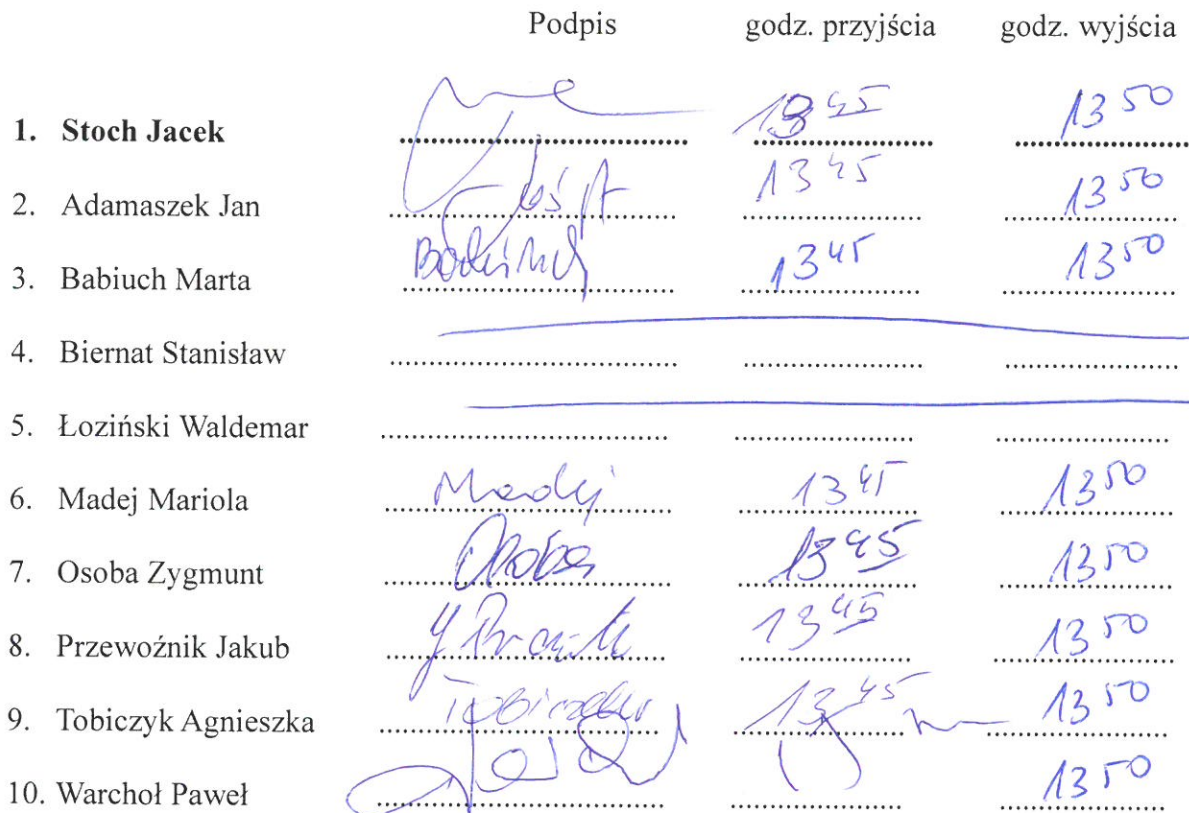 Podpis godz. przyjścia godz. wyjścia
1. Stoch Jacek 13 45 13 50
2. Adamaszek Jan 13 45 13 50
3. Babiuch Marta 13 45 13 50
4. Biernat Stanisław
5. Łoziński Waldemar
6. Madej Mariola Madej 13 45 13 50
7. Osoba Zygmunt Osoba 13 45 13 50
8. Przewoźnik Jakub 13 45 13 50
9. Tobiczyk Agnieszka 13 45 13 50
10. Warchoł Paweł 13 50